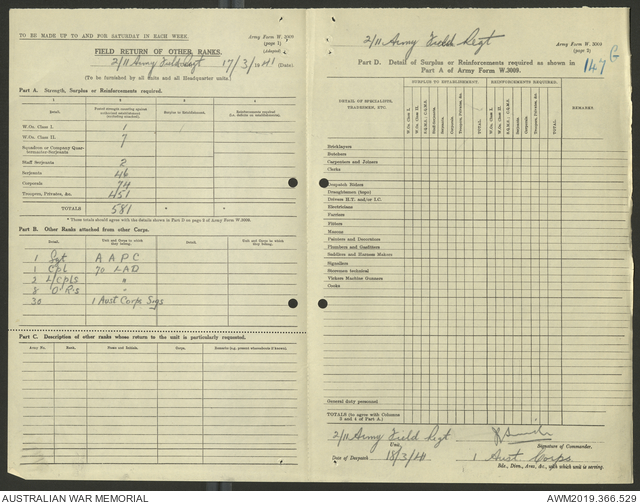 TO BE MADE UP TO AND FOR SATURDAY IN EACH WEEK.
Army Form W. 3009
(page 1)
(Adapted)
FIELD RETURN OF OTHER RANKS.
2/11 Army Field Regt 17/3/1941 (Date)
(To be furnished by all units and all Headquarter units.)
Part A. Strength, Surplus or Reinforcements required.
1 2 3 4
Detail. Surplus to Establishment.
W.Os. Class I. 1
W.Os. Class II. 7
Squadron or Company Quarter-
master-Serjeants
Staff Serjeants 2
Serjeants 46
Corporals 74
Troopers, Privates, &c. 451
TOTALS 581 * *
* These totals should agree with the details shown in Part D on page 2 of Army Form W.3009.
Part B. Other Ranks attached from other Corps.
Detail. Unit and Corps to which they belong. Detail. Unit and Corps to which they belong.
1 Sgt A A P C
1 Cpl 70 LAD
2 L/Cpls "
8 O'R's "
30 1 Aust Corps Sigs
Part C. Description of other ranks whose return to the unit is particularly requested.
Army No. Rank. Name and Initials. Corps.
2/11 Army Field Regt
Army Form W. 3009
(page 2)
147
Part D. Detail of Surplus or Reinforcements required as shown in
Part A of Army Form W.3009.
DETAIL OF SPECIALISTS, TRADESMEN, ETC.
SURPLUS TO ESTABLISHMENT. REINFORCEMENTS REQUIRED.
W.Os. Class I. W.Os. Class II. Staff Serjeants. Serjeants. Corporals. Troopers, Privates, &c. TOTAL. W.Os. Class I. W.Os. Class II. Staff Serjeants. Serjeants. Corporals. Troopers, Privates, &c. TOTAL. REMARKS.
Bricklayers
Butchers
Carpenters and Joiners
Clerks
Despatch Riders
Draughtsmen (topo)
Drivers H.T. and/or I.C.
Electricians
Farriers
Fitters
Masons
Painters and Decorators
Plumbers and Gasfitters
Saddlers and Harness Makers
Signallers
Storemen technical
Vickers Machine Gunners
Cooks
General duty personnel
TOTALS (to agree with Columns
3 and 4 of Part A.)
2/11 Army Field Regt
Unit. Signature of Commander.
Date of Despatch 18/3/41 1 Aust. Corps
Bde., Divn., Area, &c., with which unit is serving.
AUSTRALIAN WAR MEMORIAL
AWM2019.366.529